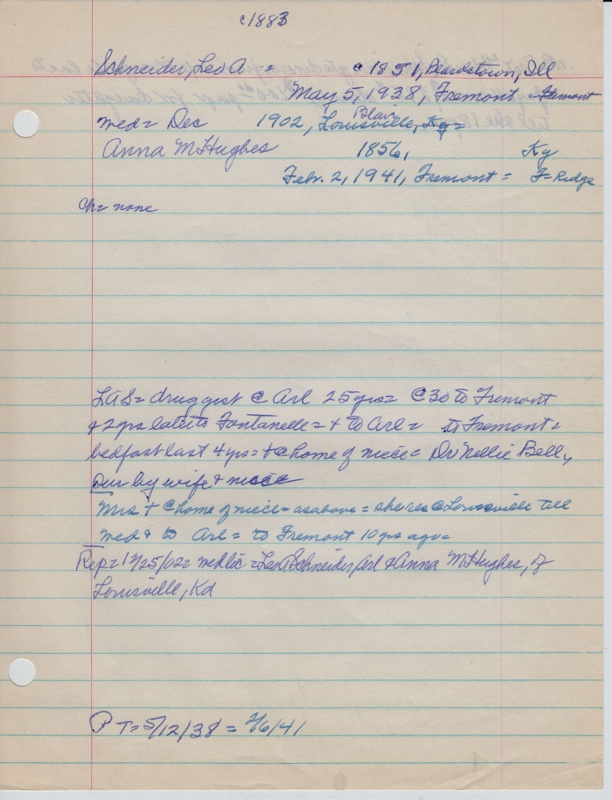 c1883
Schneider, Leo A. = c 1851, Beardstown, Ill
May 5, 1938, Fremont
Blair
med = Dec 1902, Louisville, Ky =
Anna McHughes 1856, Ky
Febr. 2, 1941, Fremont = F = Ridge
ch = none
LAS = druggist @ Arl 25 yrs = @30 to Fremont
& 2 yrs later to Fontanelle = + to Arl = to Fremont =
bedfast last 4 yrs = + @ home of niece = Dr Nellie Bell,
sur by wife & niece
Mrs + @ home of niece = as above = she res @ Louisville till
med & to Arl = to Fremont 10 yrs ago =
Rep = 12/25/02 = med lic = Leo A Schneider, Arl & Anna McHughes, of
Louisville, Kd
P T = 5/12/38 = 2/6/41